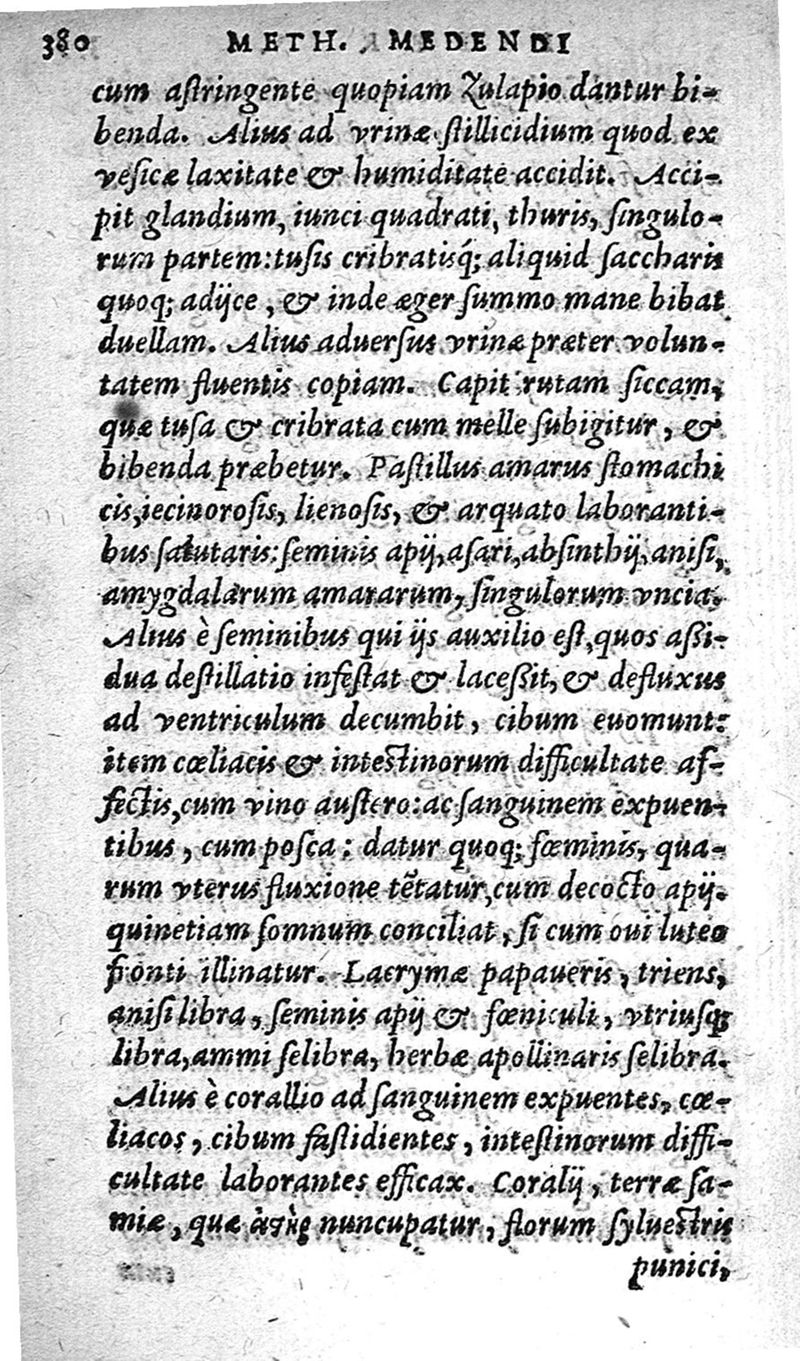 380 METH. MEDENDI
cum aſtringente quopiam Zulapio dantur bi-
benda. Alius ad vrinæ ſtillicidium quod ex
veſicæ laxitate & humiditate accidit. Acci-
pit glandium, iunci quadrati, thuris, ſingulo-
rum partem: tuſis cribratisq́; aliquid ſacchari
quoq; adijce, & inde æger ſummo mane bibat
duellam. Alius aduerſus vrinæ præter volun-
tatem fluentis copiam. Capit rutam ſiccam,
quæ tuſa & cribrata cum melle ſubigitur, &
bibenda præbetur. Paſtillus amarus ſtomachi
cis, iecinoroſis, lienoſis, & arquato laboranti-
bus ſalutaris: ſeminis apij, aſari, abſinthij, aniſi,
amygdalarum amararum, ſingulorum vncia.
Alius è ſeminibus qui ijs auxilio eſt, quos aſſi-
dua deſtillatio infeſtat & laceſſit, & defluxus
ad ventriculum decumbit, cibum euomunt:
item cœliacis & inteſtinorum difficultate af-
fectis, cum vino auſtero: ac ſanguinem expuen-
tibus, cum poſca: datur quoq; fœminis, qua-
rum vterus fluxione tẽtatur, cum decocto apij.
quinetiam ſomnum conciliat, ſi cum oui luteo
fronti illinatur. Lacrymæ papaueris, triens,
aniſi libra, ſeminis apij & fœniculi, vtriuſq;
libra, ammi ſelibra, herbæ apollinaris ſelibra.
Alius è corallio ad ſanguinem expuentes, cœ-
liacos, cibum faſtidientes, inteſtinorum diffi-
cultate laborantes efficax. Coralij, terræ ſa-
miæ, quæ ἀϛὴρ nuncupatur, florum ſylueſtris
punici,